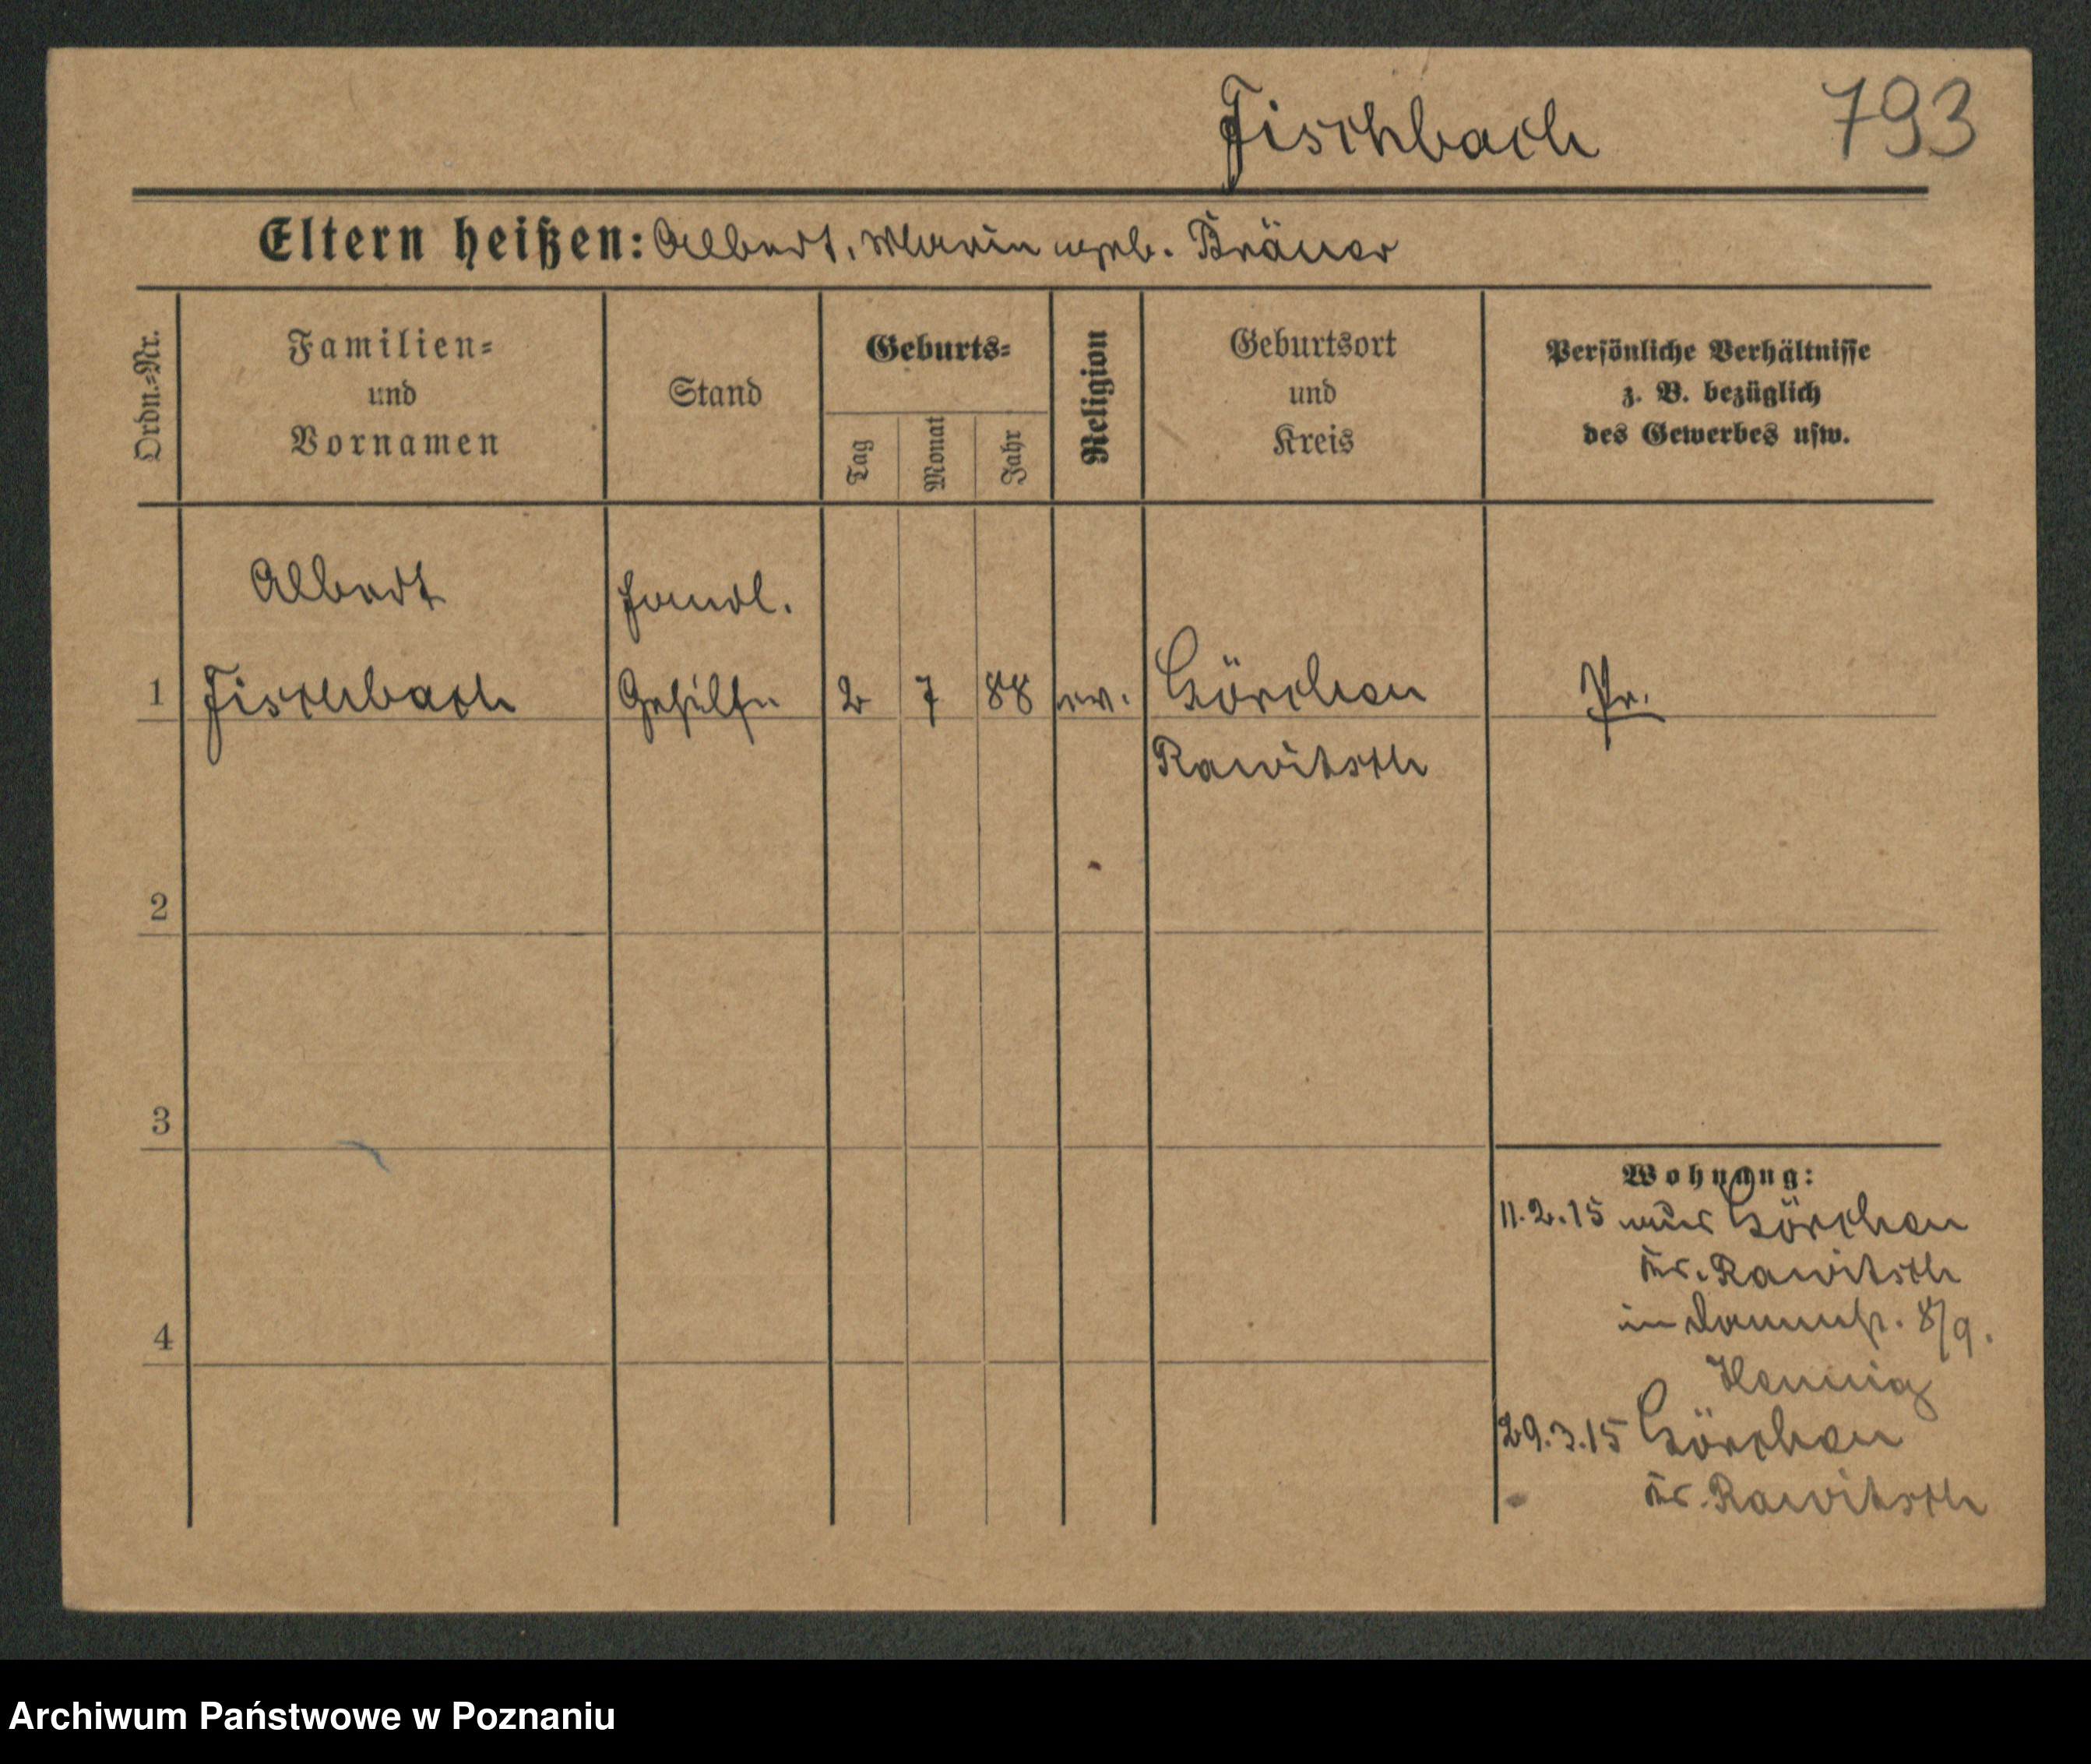 Fischbach
793
Eltern heißen: Albert, Marie geb. Bräuer
Ordn.=Nr.
Familien=
und
Vornamen
Stand
Geburts=
Tag
Monat
Jahr
Religion
Geburtsort
und
Kreis
Persönliche Verhältnisse
z. B. bezüglich
des Gewerbes usw.
Albert
Handl.
1 Fischbach Gehilfe 2 7 88 ev. Görchen Pr.
Rawitsch
2
3
4
Wohnung:
11.2.15 aus Görchen
Kr. Rawitsch
8/9.
Hennig
29.3.15 Görchen
Kr. Rawitsch
Archiwum Państwowe w Poznaniu